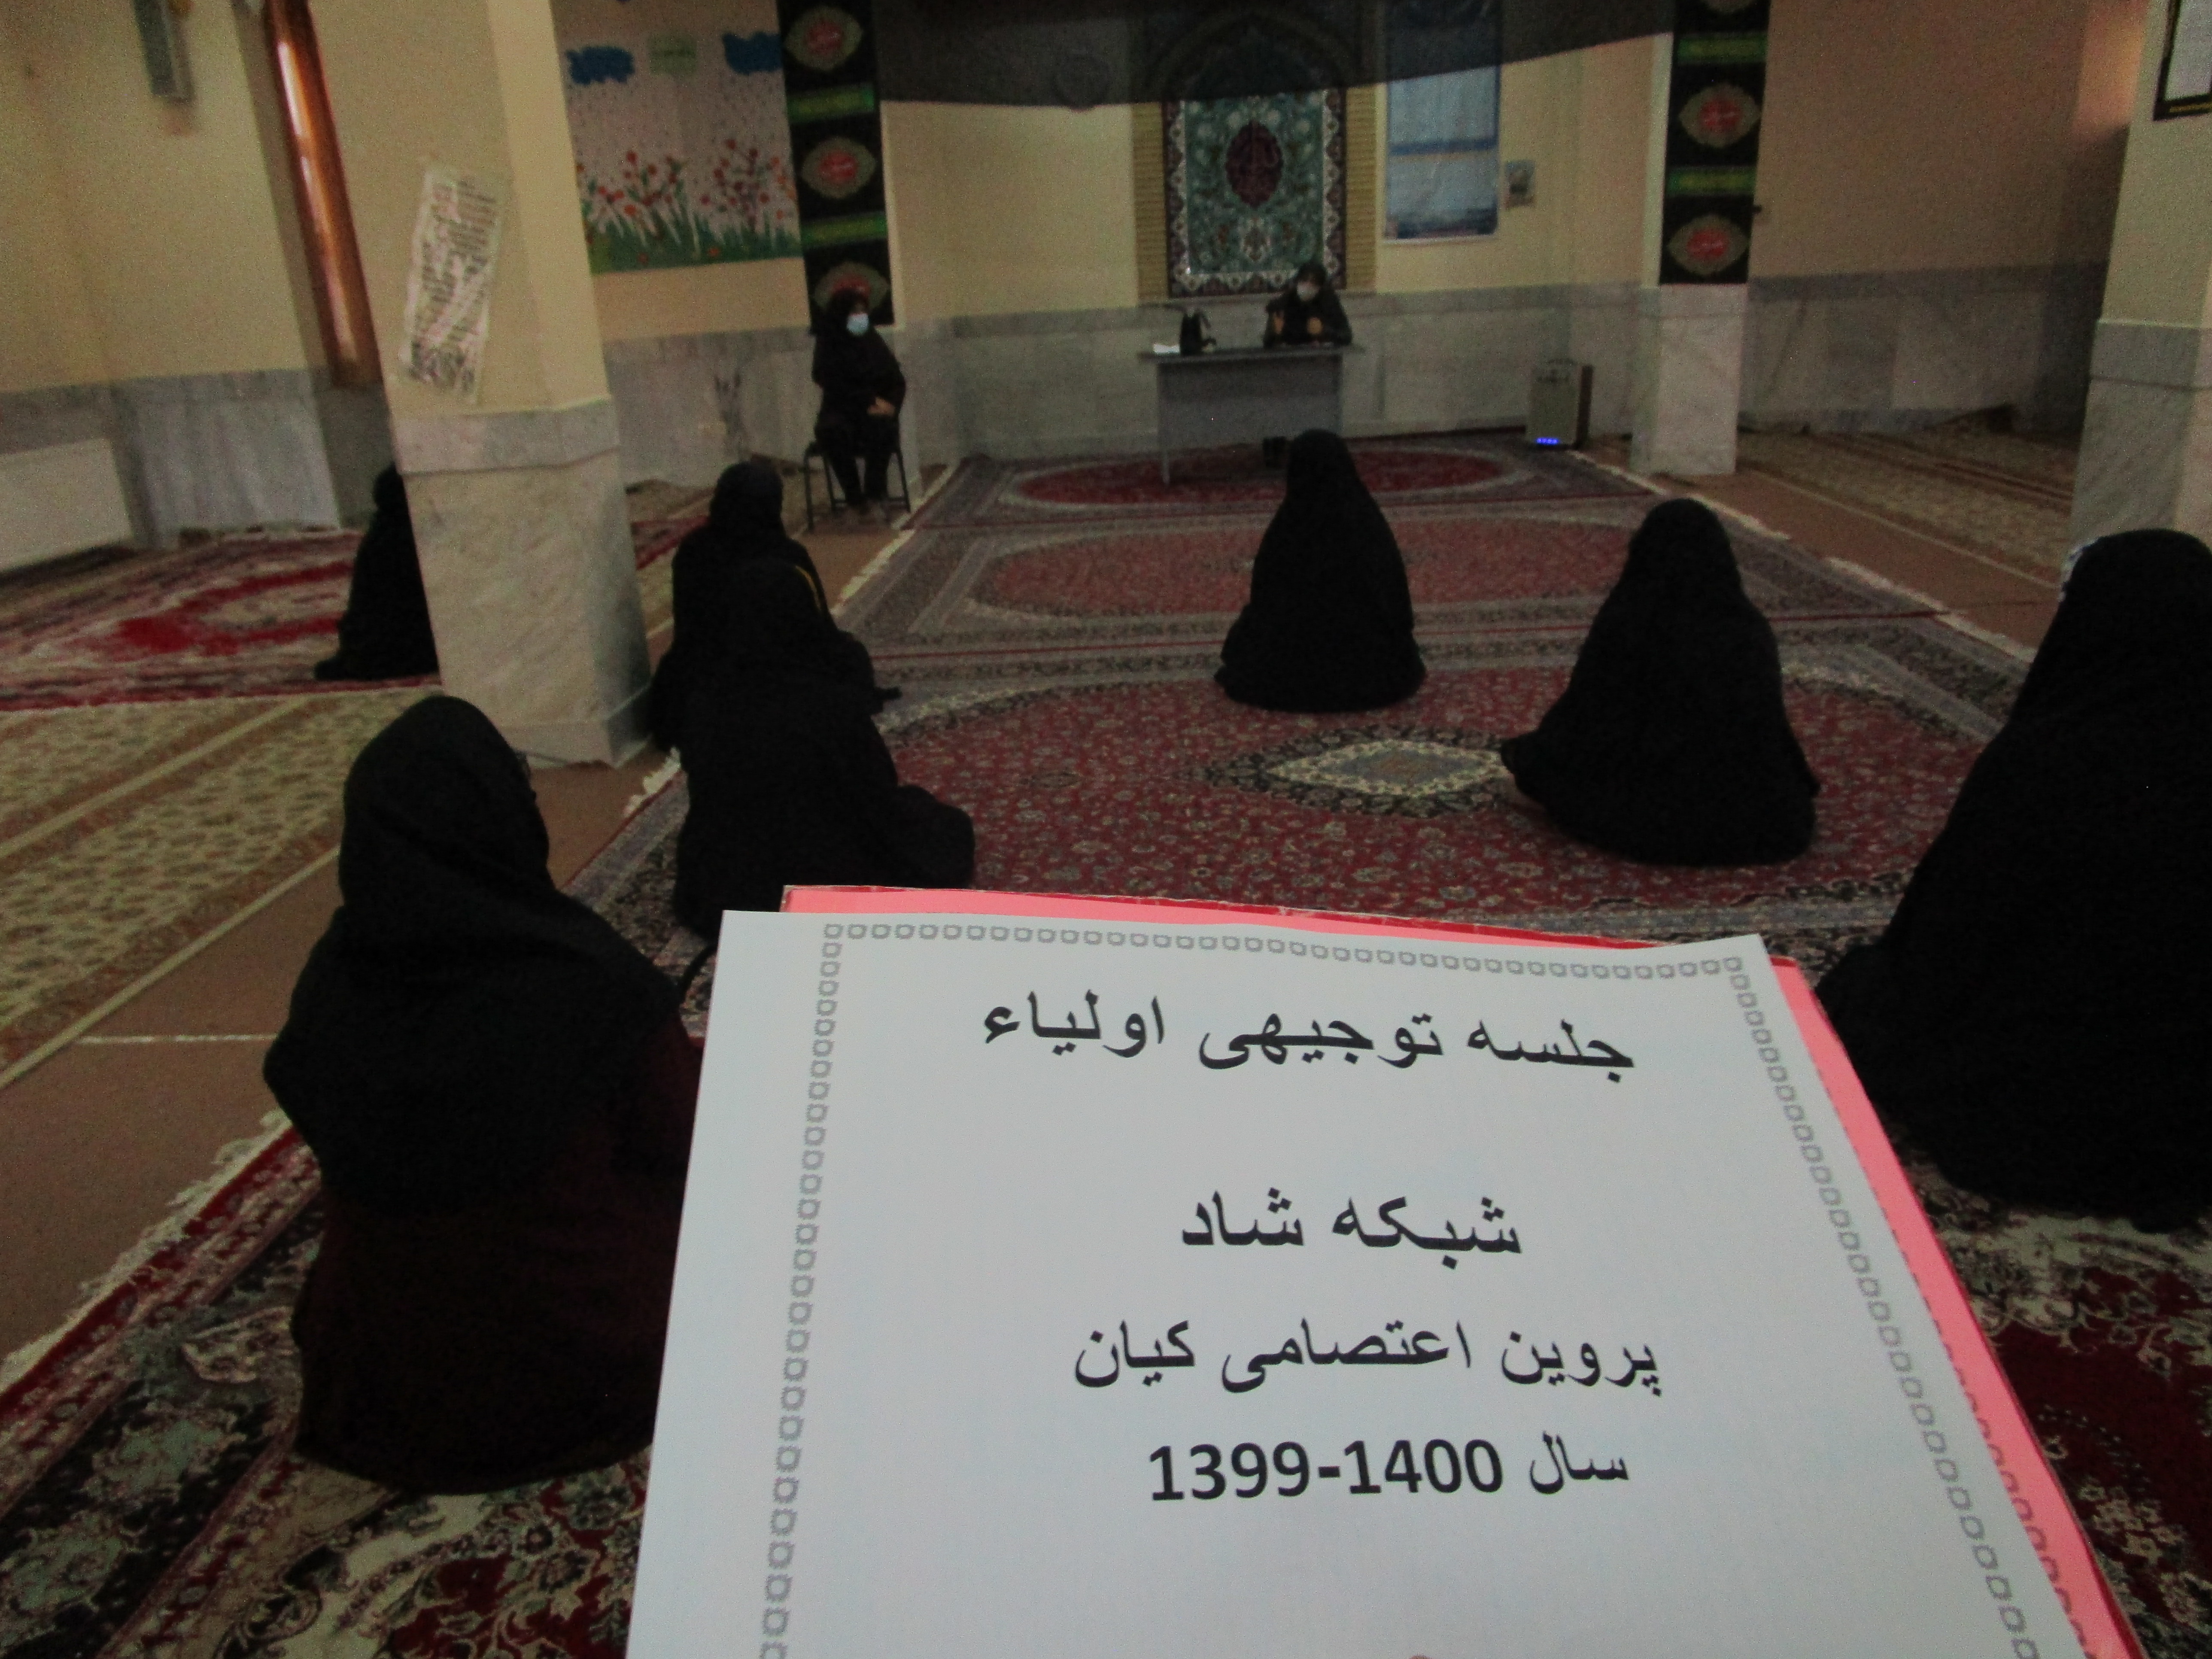 جلسه توجیهی اولیاء
شبکه شاد
پروین اعتصامی کیان
سال 1400-1399